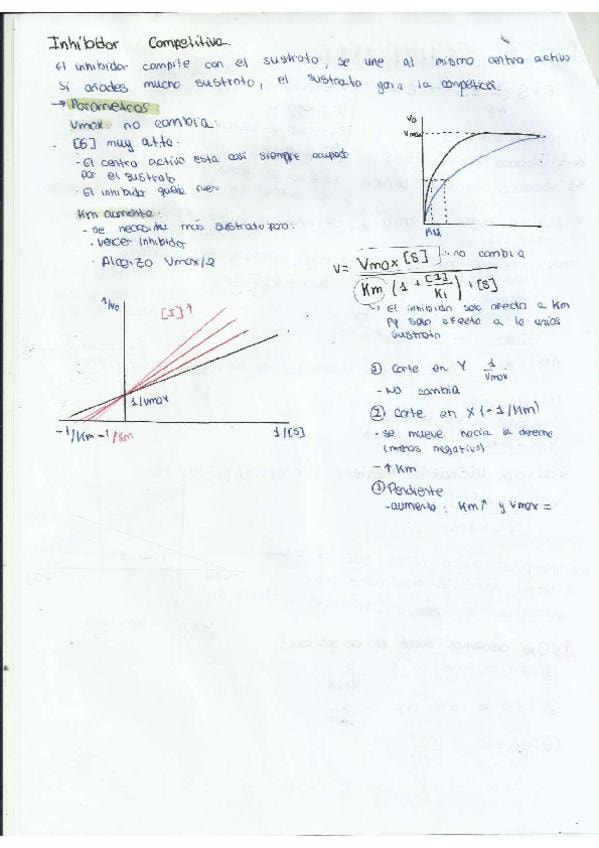 Inhibidor Competitiva.
El inhibidor compite con el sustrato, se une al mismo centro activo
Si añades mucho sustrato, el sustrato gana la competición.
→ Parámetros
Vmax no cambia:
[S] muy alta:
- El centro activo esta casi siempre ocupado
por el sustrato
- El inhibidor queda fuera
Km aumenta:
- se necesita más sustrato para:
· vencer inhibidor
· Alcanzo Vmax/2
Vo
Vmax
V = Vmax [S] no cambia
Km (1 + [I]/Ki) + [S]
El inhibidor solo afecta a Km
Pq solo afecta a la unión
sustrato
1/Vo
[I]↑
1/Vmax
-1/Km -1/Km
1/[S]
① Corte en Y 1/Vmax
- No cambia
② Corte en X (-1/Km)
- se mueve hacia la derecha
(menos negativo)
- ↑Km
③ Pendiente
- aumenta: Km↑ y Vmax =